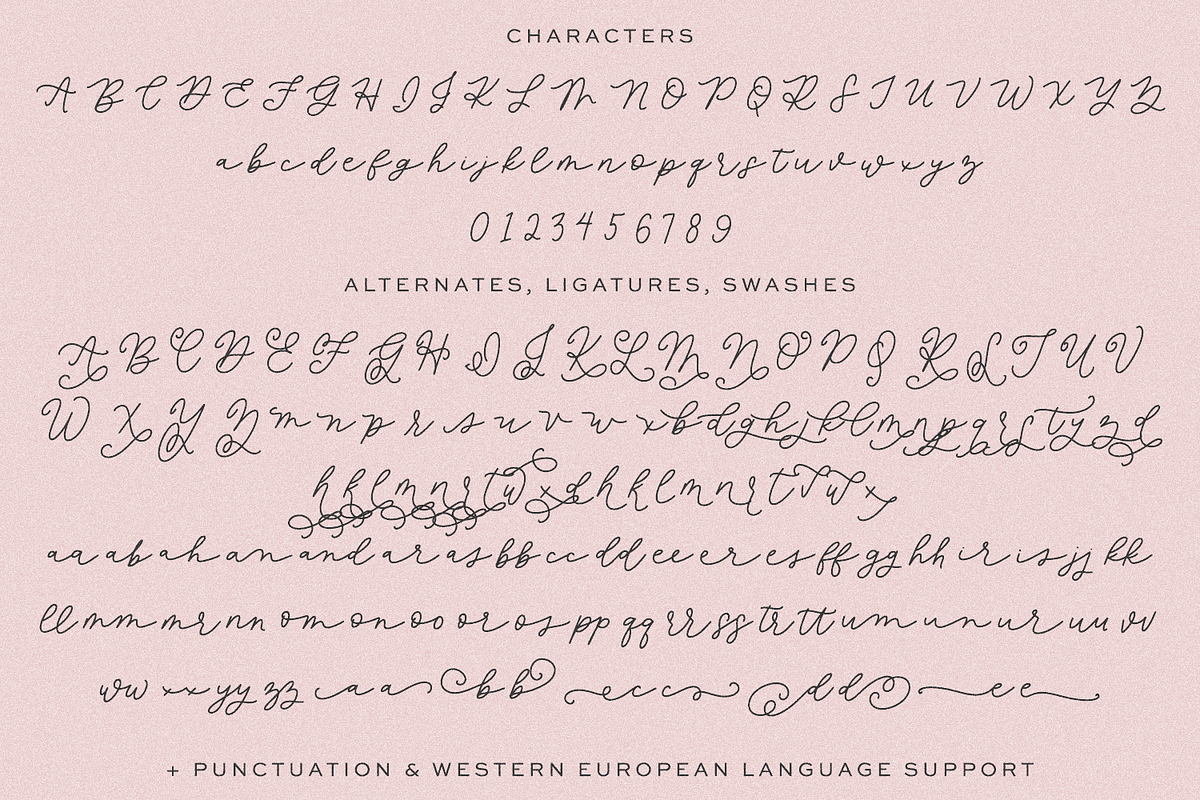 CHARACTERS
A B C D E F G H I J K L M N O P Q R S T U V W X Y Z
a b c d e f g h i j k l m n o p q r s t u v w x y z
0 1 2 3 4 5 6 7 8 9
ALTERNATES, LIGATURES, SWASHES
A B C D E F G H I J K L M N O P Q R S T U V
W X Y Z m n p r s u v w x b d g h j k l m n p q r s t y z d
h k l m n r t w x d h k l m n r t v w x
aa ab ah an and ar as bb cc dd ee er es ff gg hh ir is jj kk
ll mm mr nn om on oo or os pp qq rr ss tr tt um un ur uu vv
ww xx yy zz a a b b c c c d d e e
+ PUNCTUATION & WESTERN EUROPEAN LANGUAGE SUPPORT